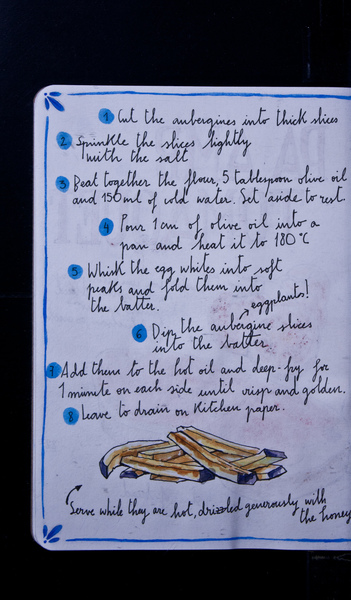 1 Cut the aubergines into thick slices
2 Sprinkle the slices lightly
with the salt
3 Beat together the flour, 5 tablespoon olive oil
and 150 ml of cold water. Set aside to rest.
4 Pour 1 cm of olive oil into a
pan and heat it to 180°C
5 Whisk the egg whites into soft
peaks and fold them into
the batter.
eggplants!
6 Dip the aubergine slices
into the batter
7 Add them to the hot oil and deep-fry for
1 minute on each side until crisp and golden.
8 Leave to drain on kitchen paper.
Serve while they are hot, drizzled generously with
the honey